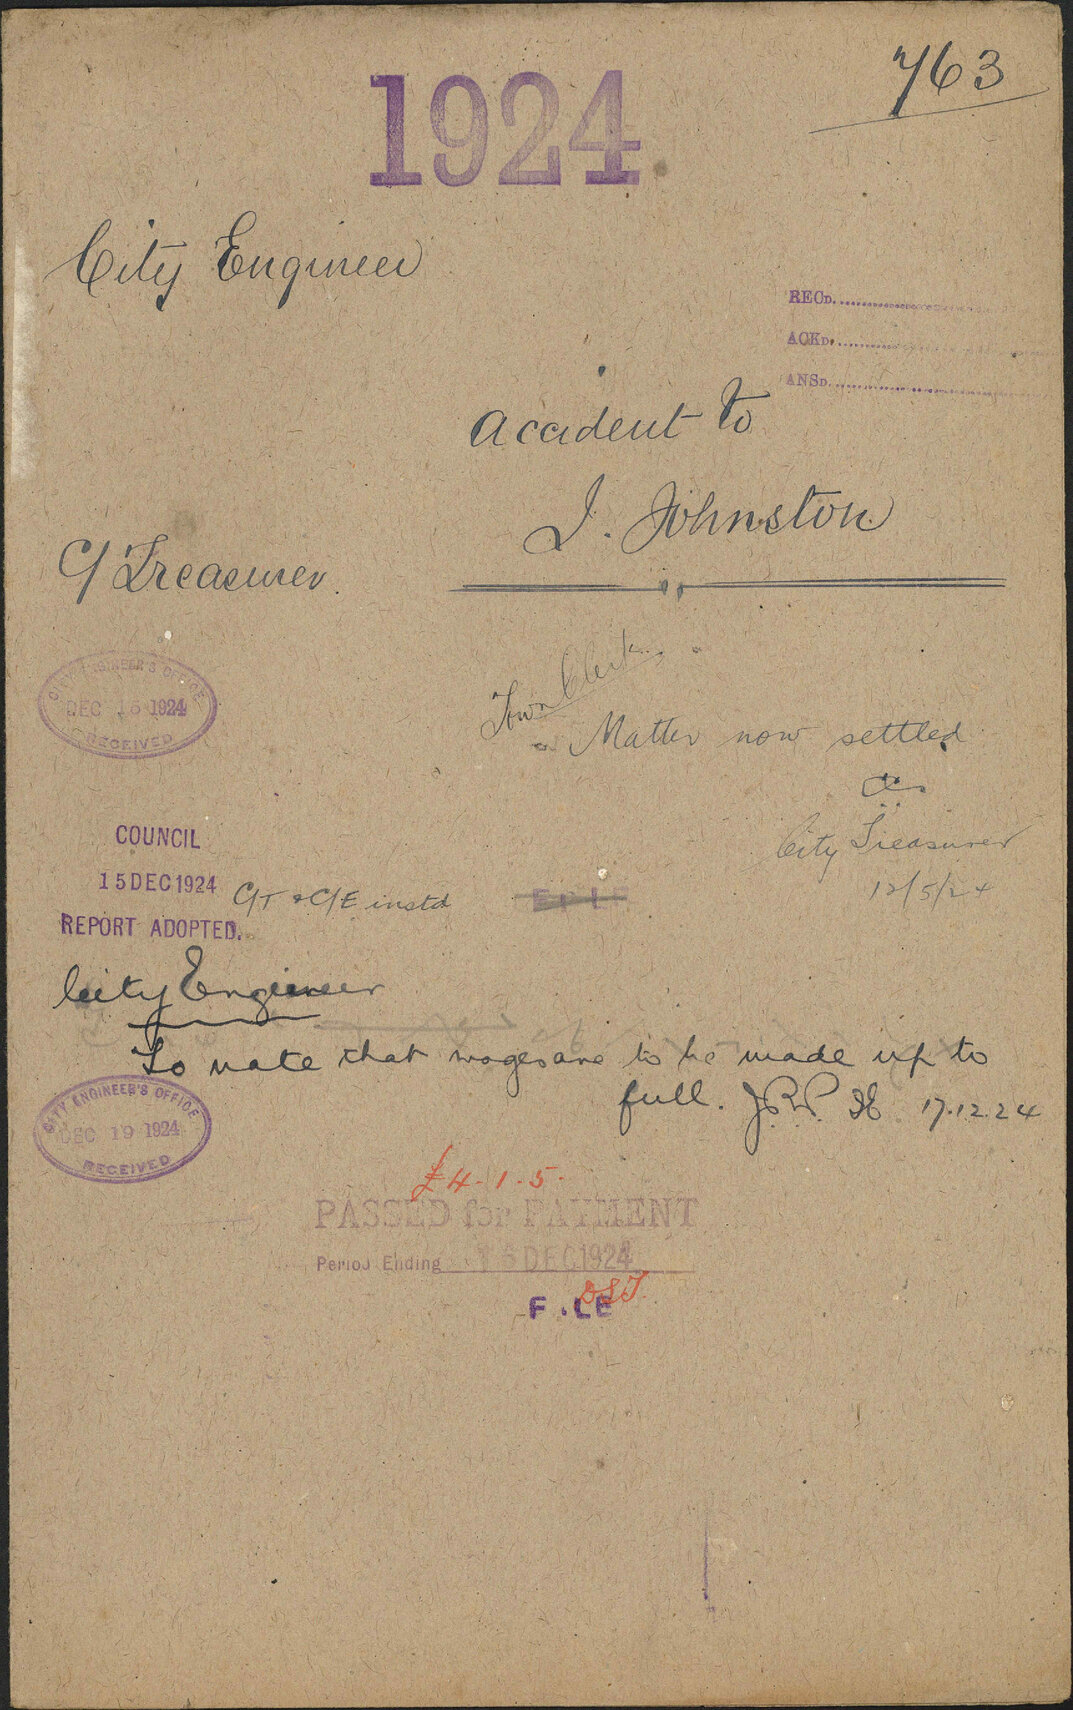 763
1924
City Engineer
RECD.
ACKD.
ANSD.
Accident to
J. Johnston
C/Treasurer.
Town Clerk.
Matter now settled
City Treasurer
12/5/24
CITY ENGINEER'S OFFICE
DEC 16 1924
RECEIVED
COUNCIL
15 DEC 1924
REPORT ADOPTED.
C/T & C/E instd
City Engineer
To note that wages are to be made up to
full. 17.12.24
CITY ENGINEER'S OFFICE
DEC 19 1924
RECEIVED
£4-1-5-
PASSED for PAYMENT
Period Ending 16 DEC 1924
F.LE